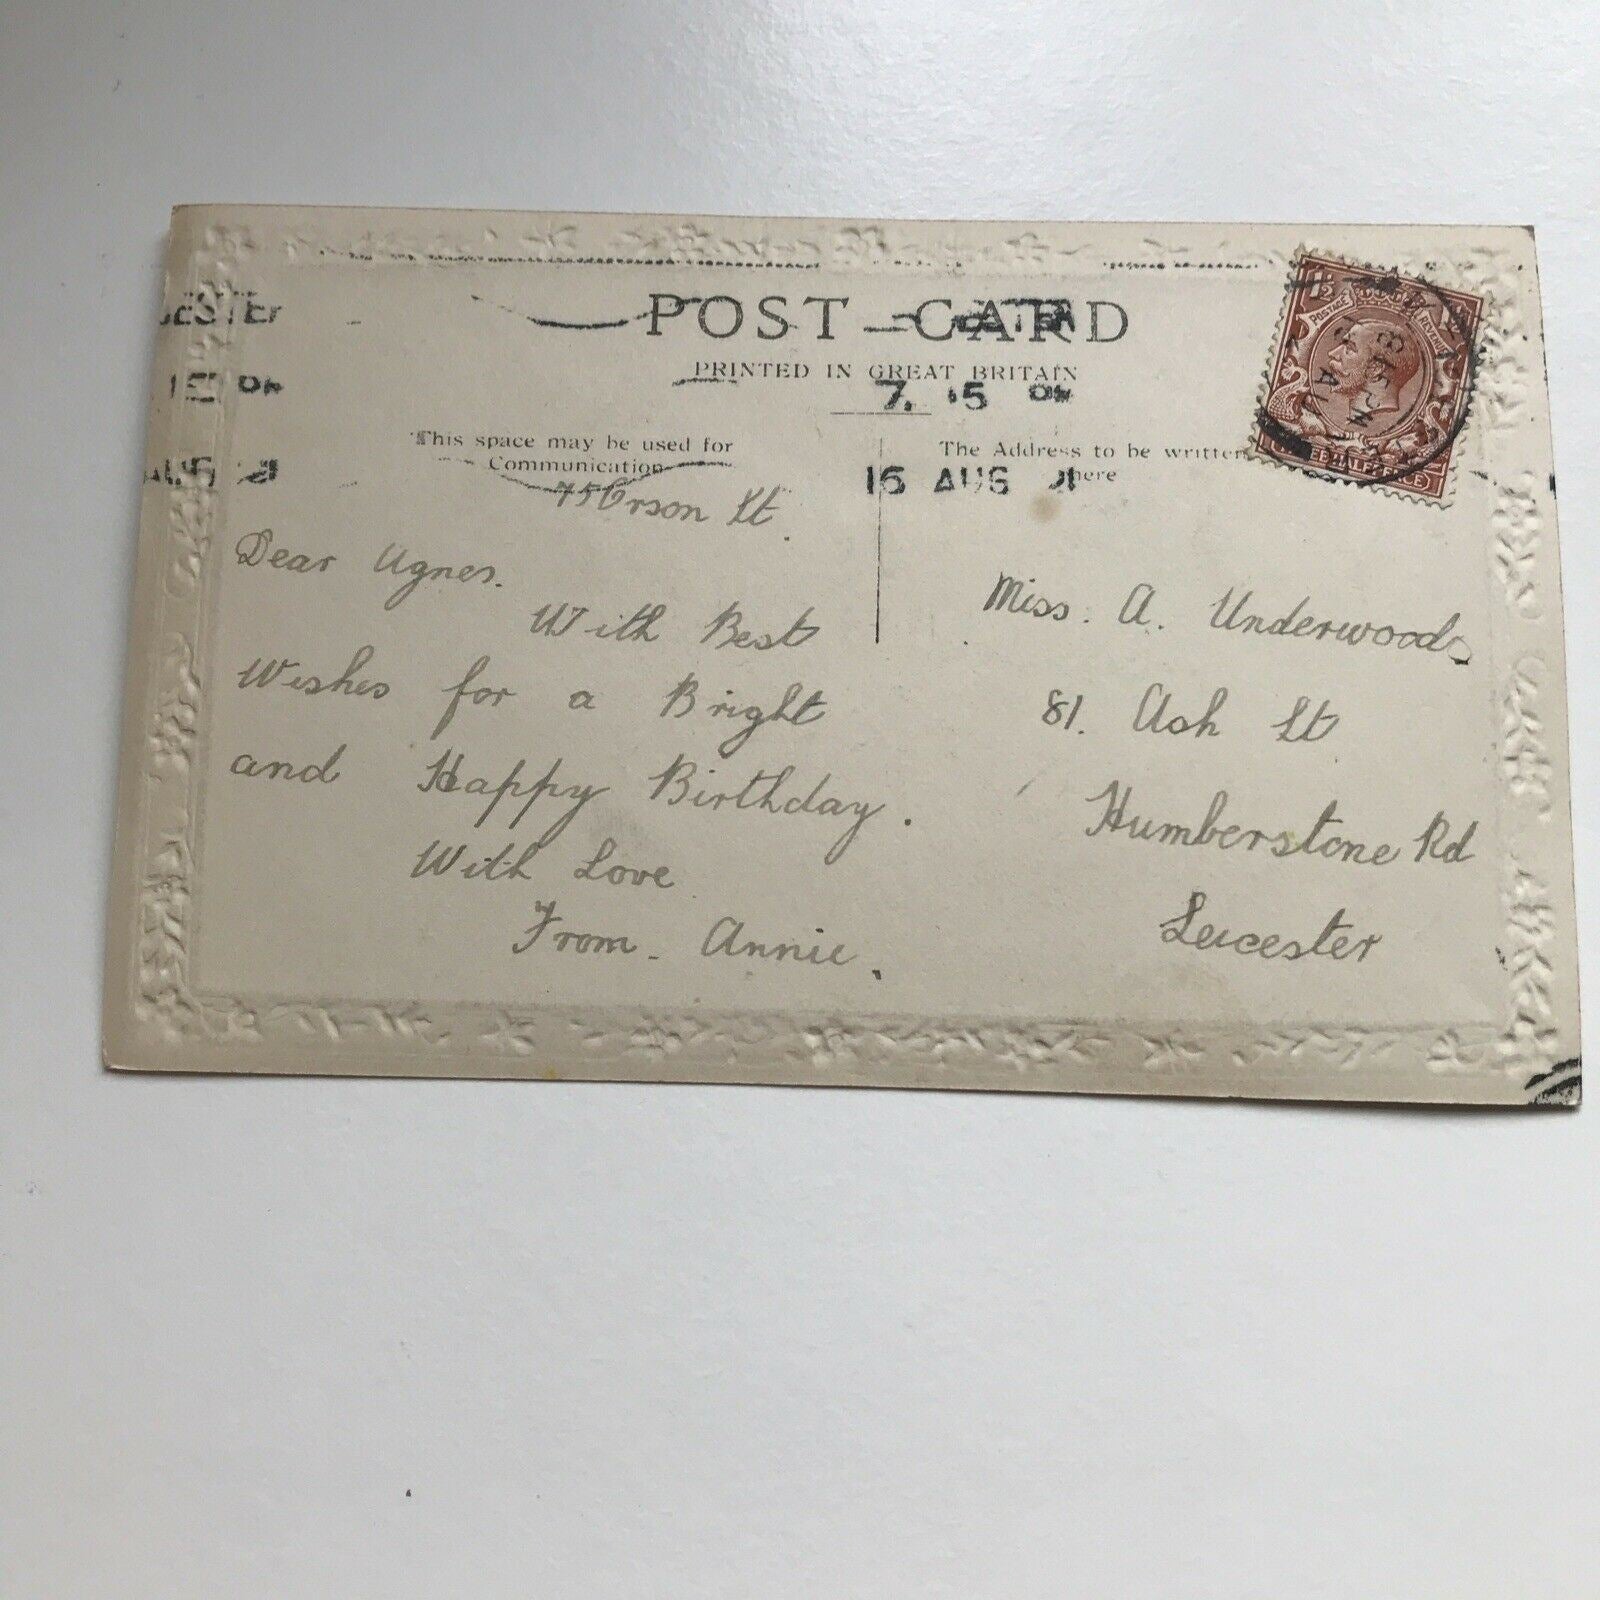 POST CARD
PRINTED IN GREAT BRITAIN
7. 15 PM
16 AUG 21
ESTER
15 PM
AUG 21
1½
POSTAGE
REVENUE
8 15 PM
This space may be used for
Communication
The Address to be written
here
75 Orson St.
Dear Agnes.
With Best
Wishes for a Bright
and Happy Birthday.
With Love
From. Annie.
Miss. A. Underwood
81. Ash St
Humberstone Rd
Leicester